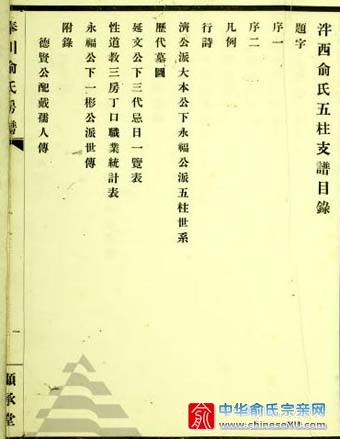 泮西俞氏五柱支譜目錄
題字
序一
序二
凡例
行詩
濟公派大本公下永福公派五柱世系
歷代墓圖
延文公下三代忌日一覽表
性道教三房丁口職業統計表
永福公下一彬公派世傳
附錄
德賢公配戴孺人傳
奉川俞氏房譜
一
順承堂
俞
中华俞氏宗亲网
www.chineseYU.com